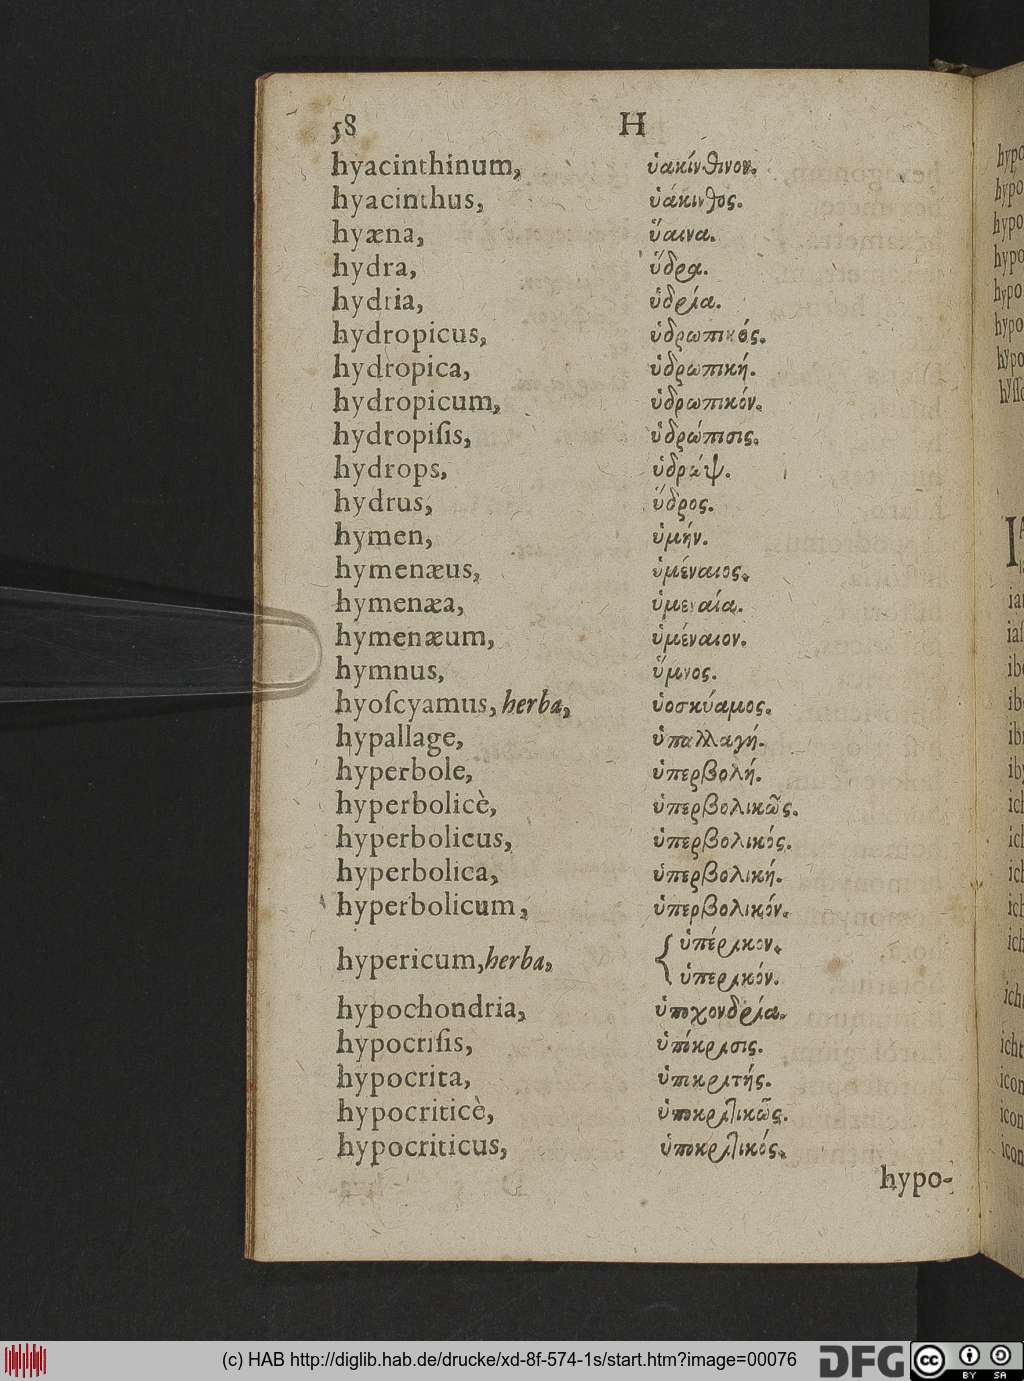 58 H
hyacinthinum, ὑακίνθινον.
hyacinthus, ὑάκινθος.
hyæna, ὕαινα.
hydra, ὕδρα.
hydria, ὑδρία.
hydropicus, ὑδρωπικός.
hydropica, ὑδρωπική.
hydropicum, ὑδρωπικόν.
hydropiſis, ὑδρώπισις.
hydrops, ὑδρώψ.
hydrus, ὕδρος.
hymen, ὑμήν.
hymenæus, ὑμέναιος.
hymenæa, ὑμεναία.
hymenæum, ὑμέναιον.
hymnus, ὕμνος.
hyoſcyamus, herba, ὑοσκύαμος.
hypallage, ὑπαλλαγή.
hyperbole, ὑπερβολή.
hyperbolicè, ὑπερβολικῶς.
hyperbolicus, ὑπερβολικός.
hyperbolica, ὑπερβολική.
hyperbolicum, ὑπερβολικόν.
hypericum, herba, { ὑπέρικον.
ὑπερικόν.
hypochondria, ὑποχονδρία.
hypocriſis, ὑπόκρισις.
hypocrita, ὑποκριτής.
hypocriticè, ὑποκριτικῶς.
hypocriticus, ὑποκριτικός.
hypo-
(c) HAB http://diglib.hab.de/drucke/xd-8f-574-1s/start.htm?image=00076
DFG
cc BY SA